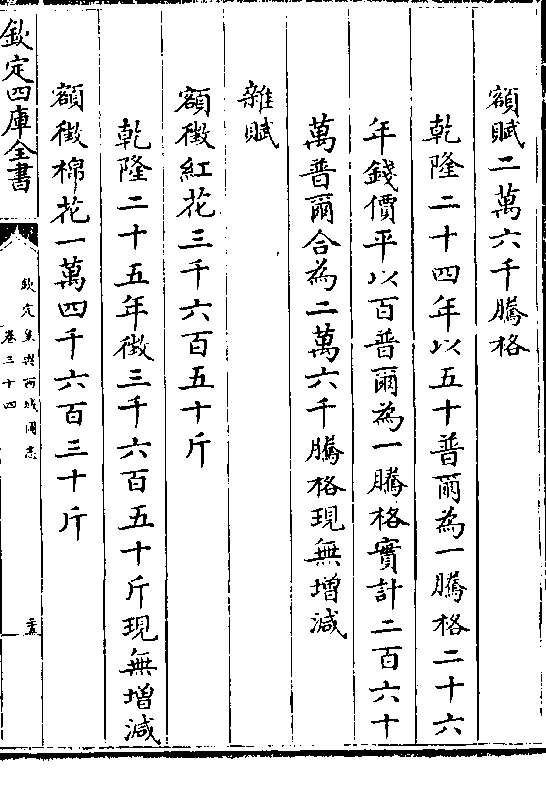 額賦二萬六千騰格
乾隆二十四年以五十普爾為一騰格二十六
年錢價平以百普爾為一騰格實計二百六十
萬普爾合為二萬六千騰格現無增減
雜賦
額徵紅花三千六百五十斤
乾隆二十五年徵三千六百五十斤現無增減
額徵棉花一萬四千六百三十斤
欽定四庫全書
欽定皇輿西域圖志
卷三十四